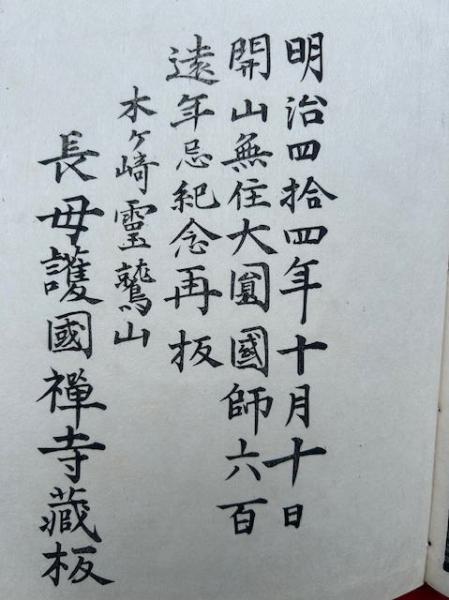 明治四拾四年十月十日
開山無住大圓國師六百
遠年忌紀念再板
木ヶ﨑靈鷲山
長母護國禅寺藏板